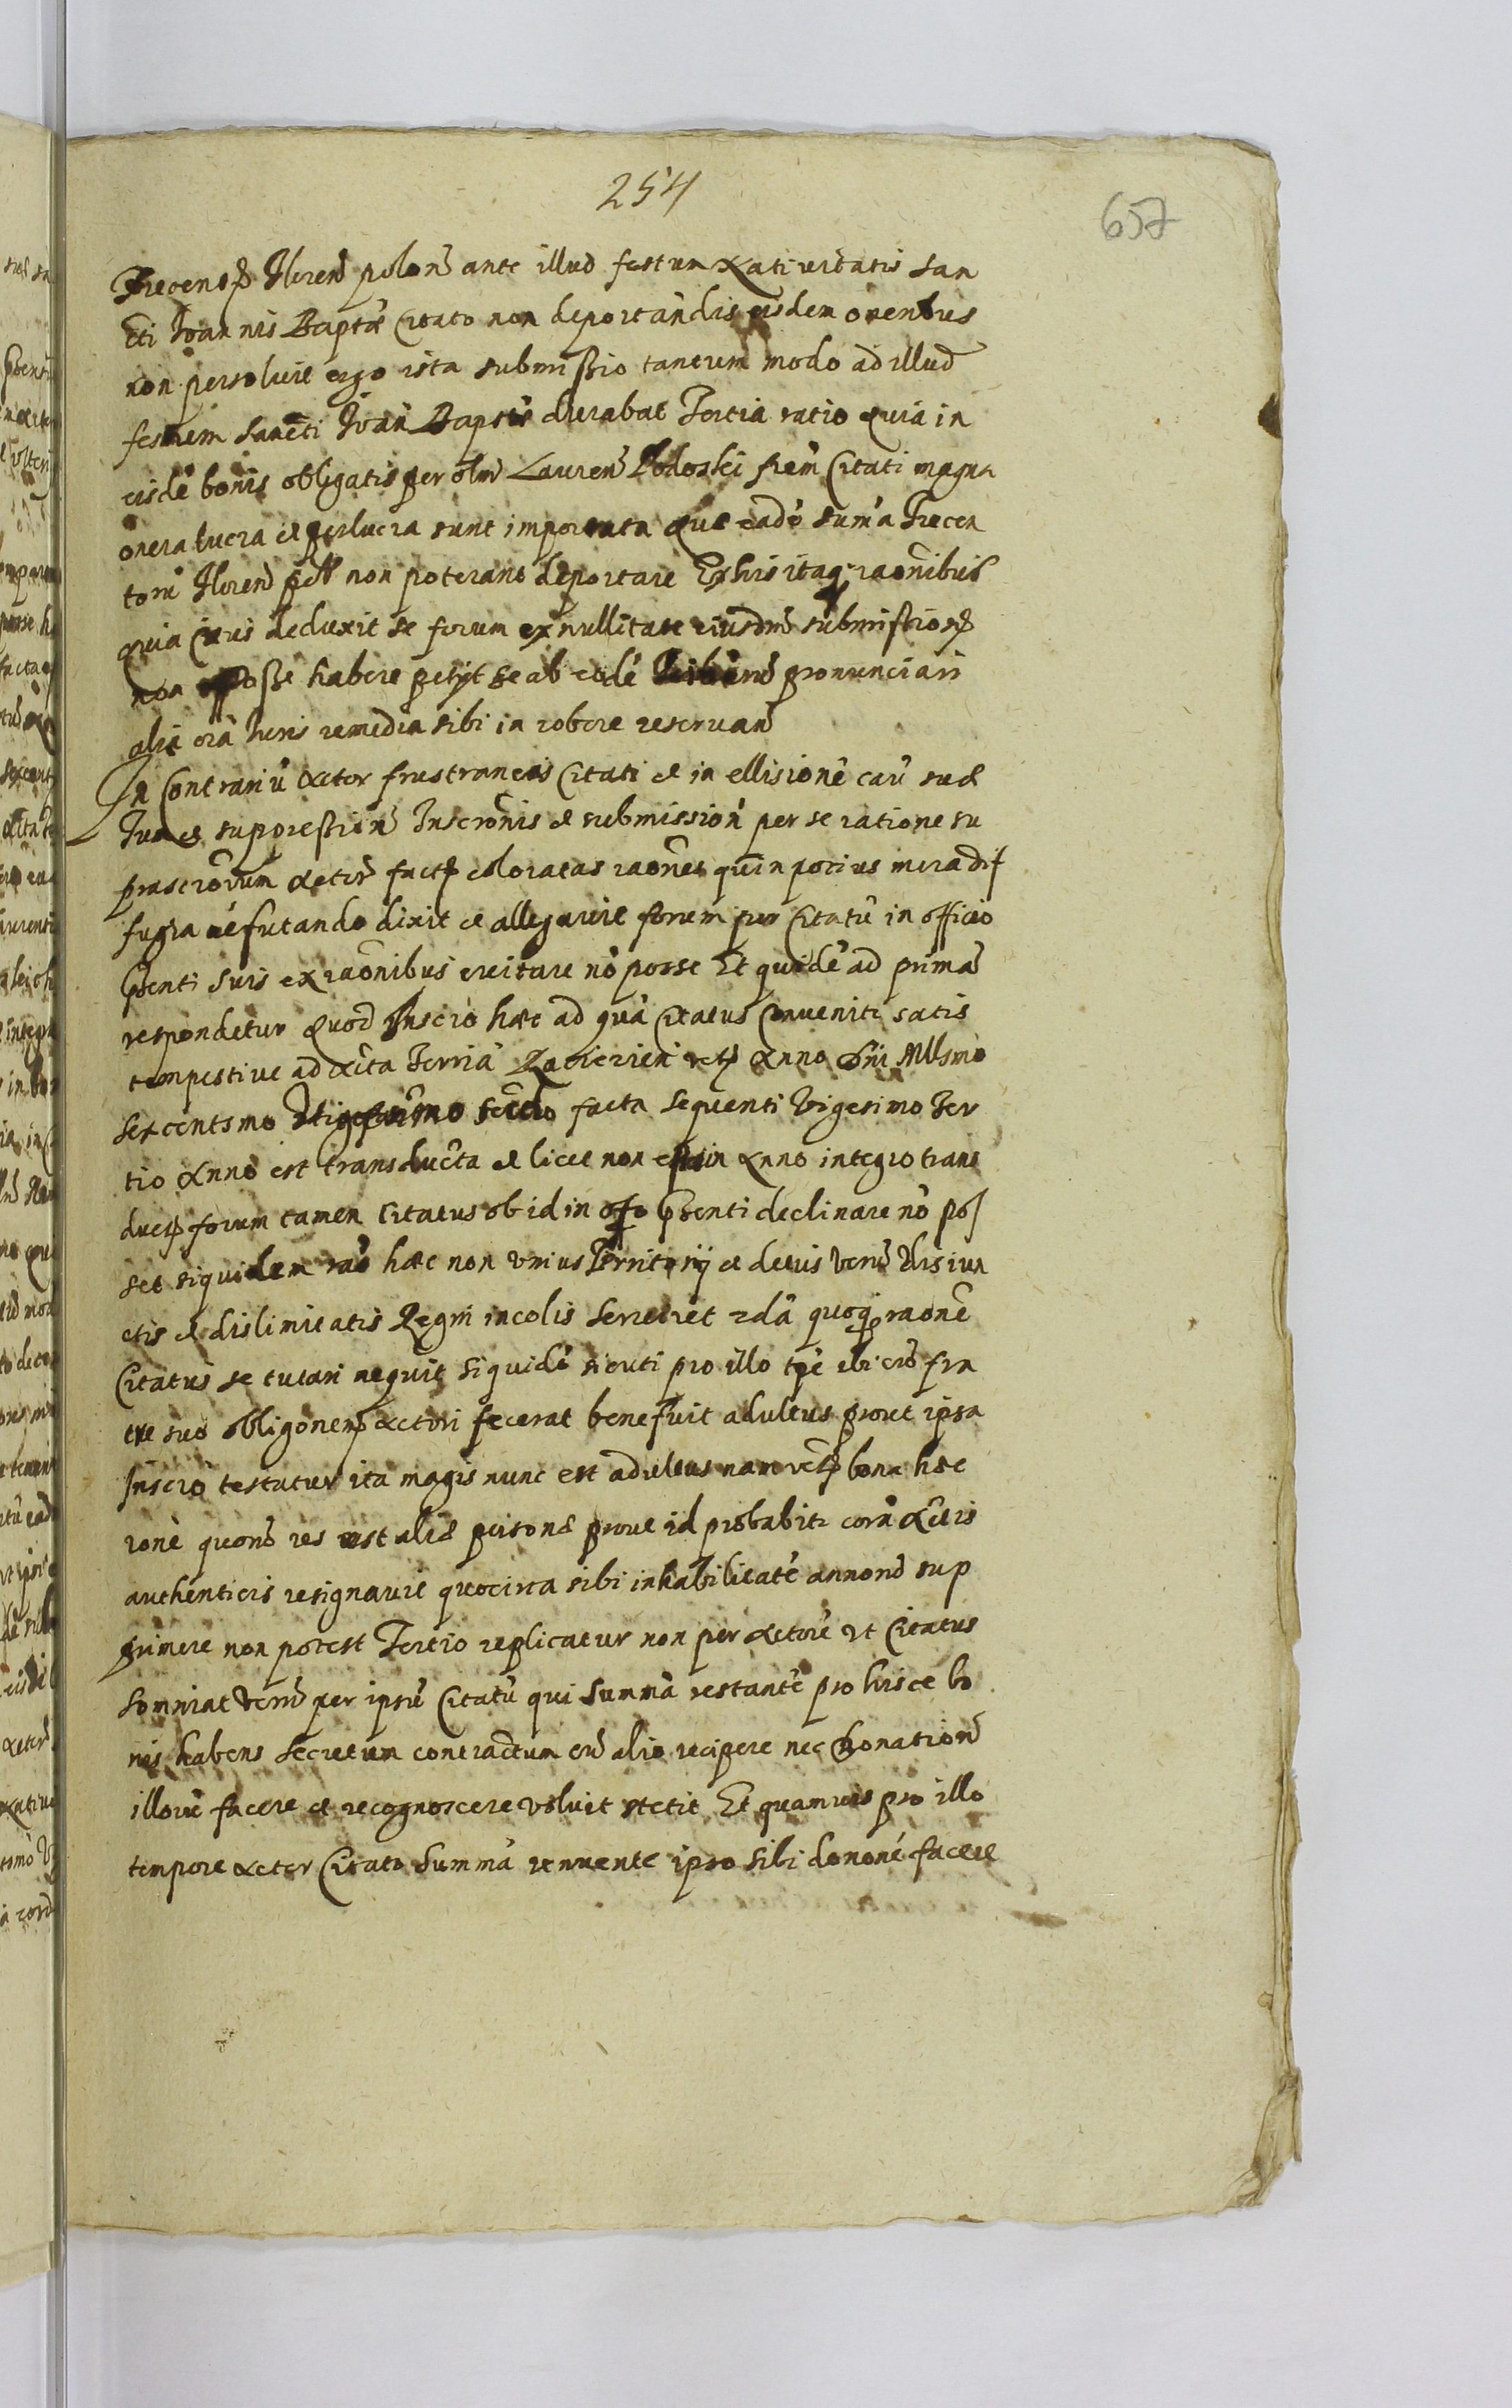 254
657
Trecenos Floren polon ante illud festum Nativitatis San
cti Ioannis Baptæ Citato non deportandis eisdem oneribus
non persolvit ergo ista submissio tantum modo ad illud
festum Sancti Ioan Baptæ durabat Tertia ratio quia in
eisdē bonis obligatis per olim Lauren Podoski frem Citati magna
onera lucra et perlucra sunt importata quæ eadē sum̄a Trecen
torū Floren non poterant deportare Ex his itaq raonibus
quia Citus deduxit se forum ex nullitate eiusdm submissiois
non posse habere petijt se ab eodē pronunciari
alia oīa Iuris remedia sibi in robore reservan
In Contrariū Actor frustraneas Citati et in ellisionē cau suæ
Iudæ suppressionē Inscronis et submission per se ratione su
prascrorum actis factæ coloratas raones quin potius mera dif
fugia refutando dixit et allegavit forum per Citatū in officio
pnti suis ex raonibus evitare nō posse Et quidē ad primā
respondetur quod Inscrio hæc ad quā Citatus Convenitur satis
tempestive ad Acta Terria Anno Dni Millsmo
sexcentsmo Vigesimo secdo facta sequenti Vigesimo Ter
tio Anno est transducta et licet non esset in Anno integro trans
ducta forum tamen Citatus ob id in offo pnti declinare nō pos
set siquidem rāo hæc non unius Territorij et
ctis et dislimitatis Regni incolis serviret 2dā quoq raonē
Citatus se tutari nequit siquidē sicuti pro illo tpē ubi cū fra
tre suo obligonem Actori fecerat bene fuit adultus prout ipsa
Inscrio testatur ita magis nunc est adultus nam bona hæc
ronē quorū res est aliæ personæ prout id probabitur corā Actis
authenticis resignavit quocirca sibi inhabilitatē annorū sup
primere non potest Tertio replicatur non per Actorē ut Citatus
somniat verū per ipsū Citatū qui summā restantē pro hisce bo
nis habens secretum contractum cū alio recipere nec donationē
illorū facere et recognoscere voluit stetit Et quamvis pro illo
tempore Actor Citato summā renuente ipso sibi dononē facere